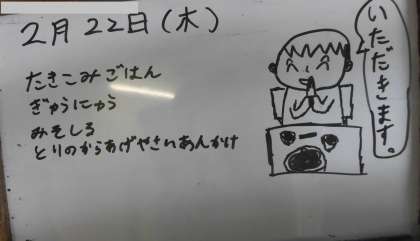 2月22日(木)
たきこみごはん
ぎゅうにゅう
みそしる
とりのからあげやさいあんかけ
いただきます。